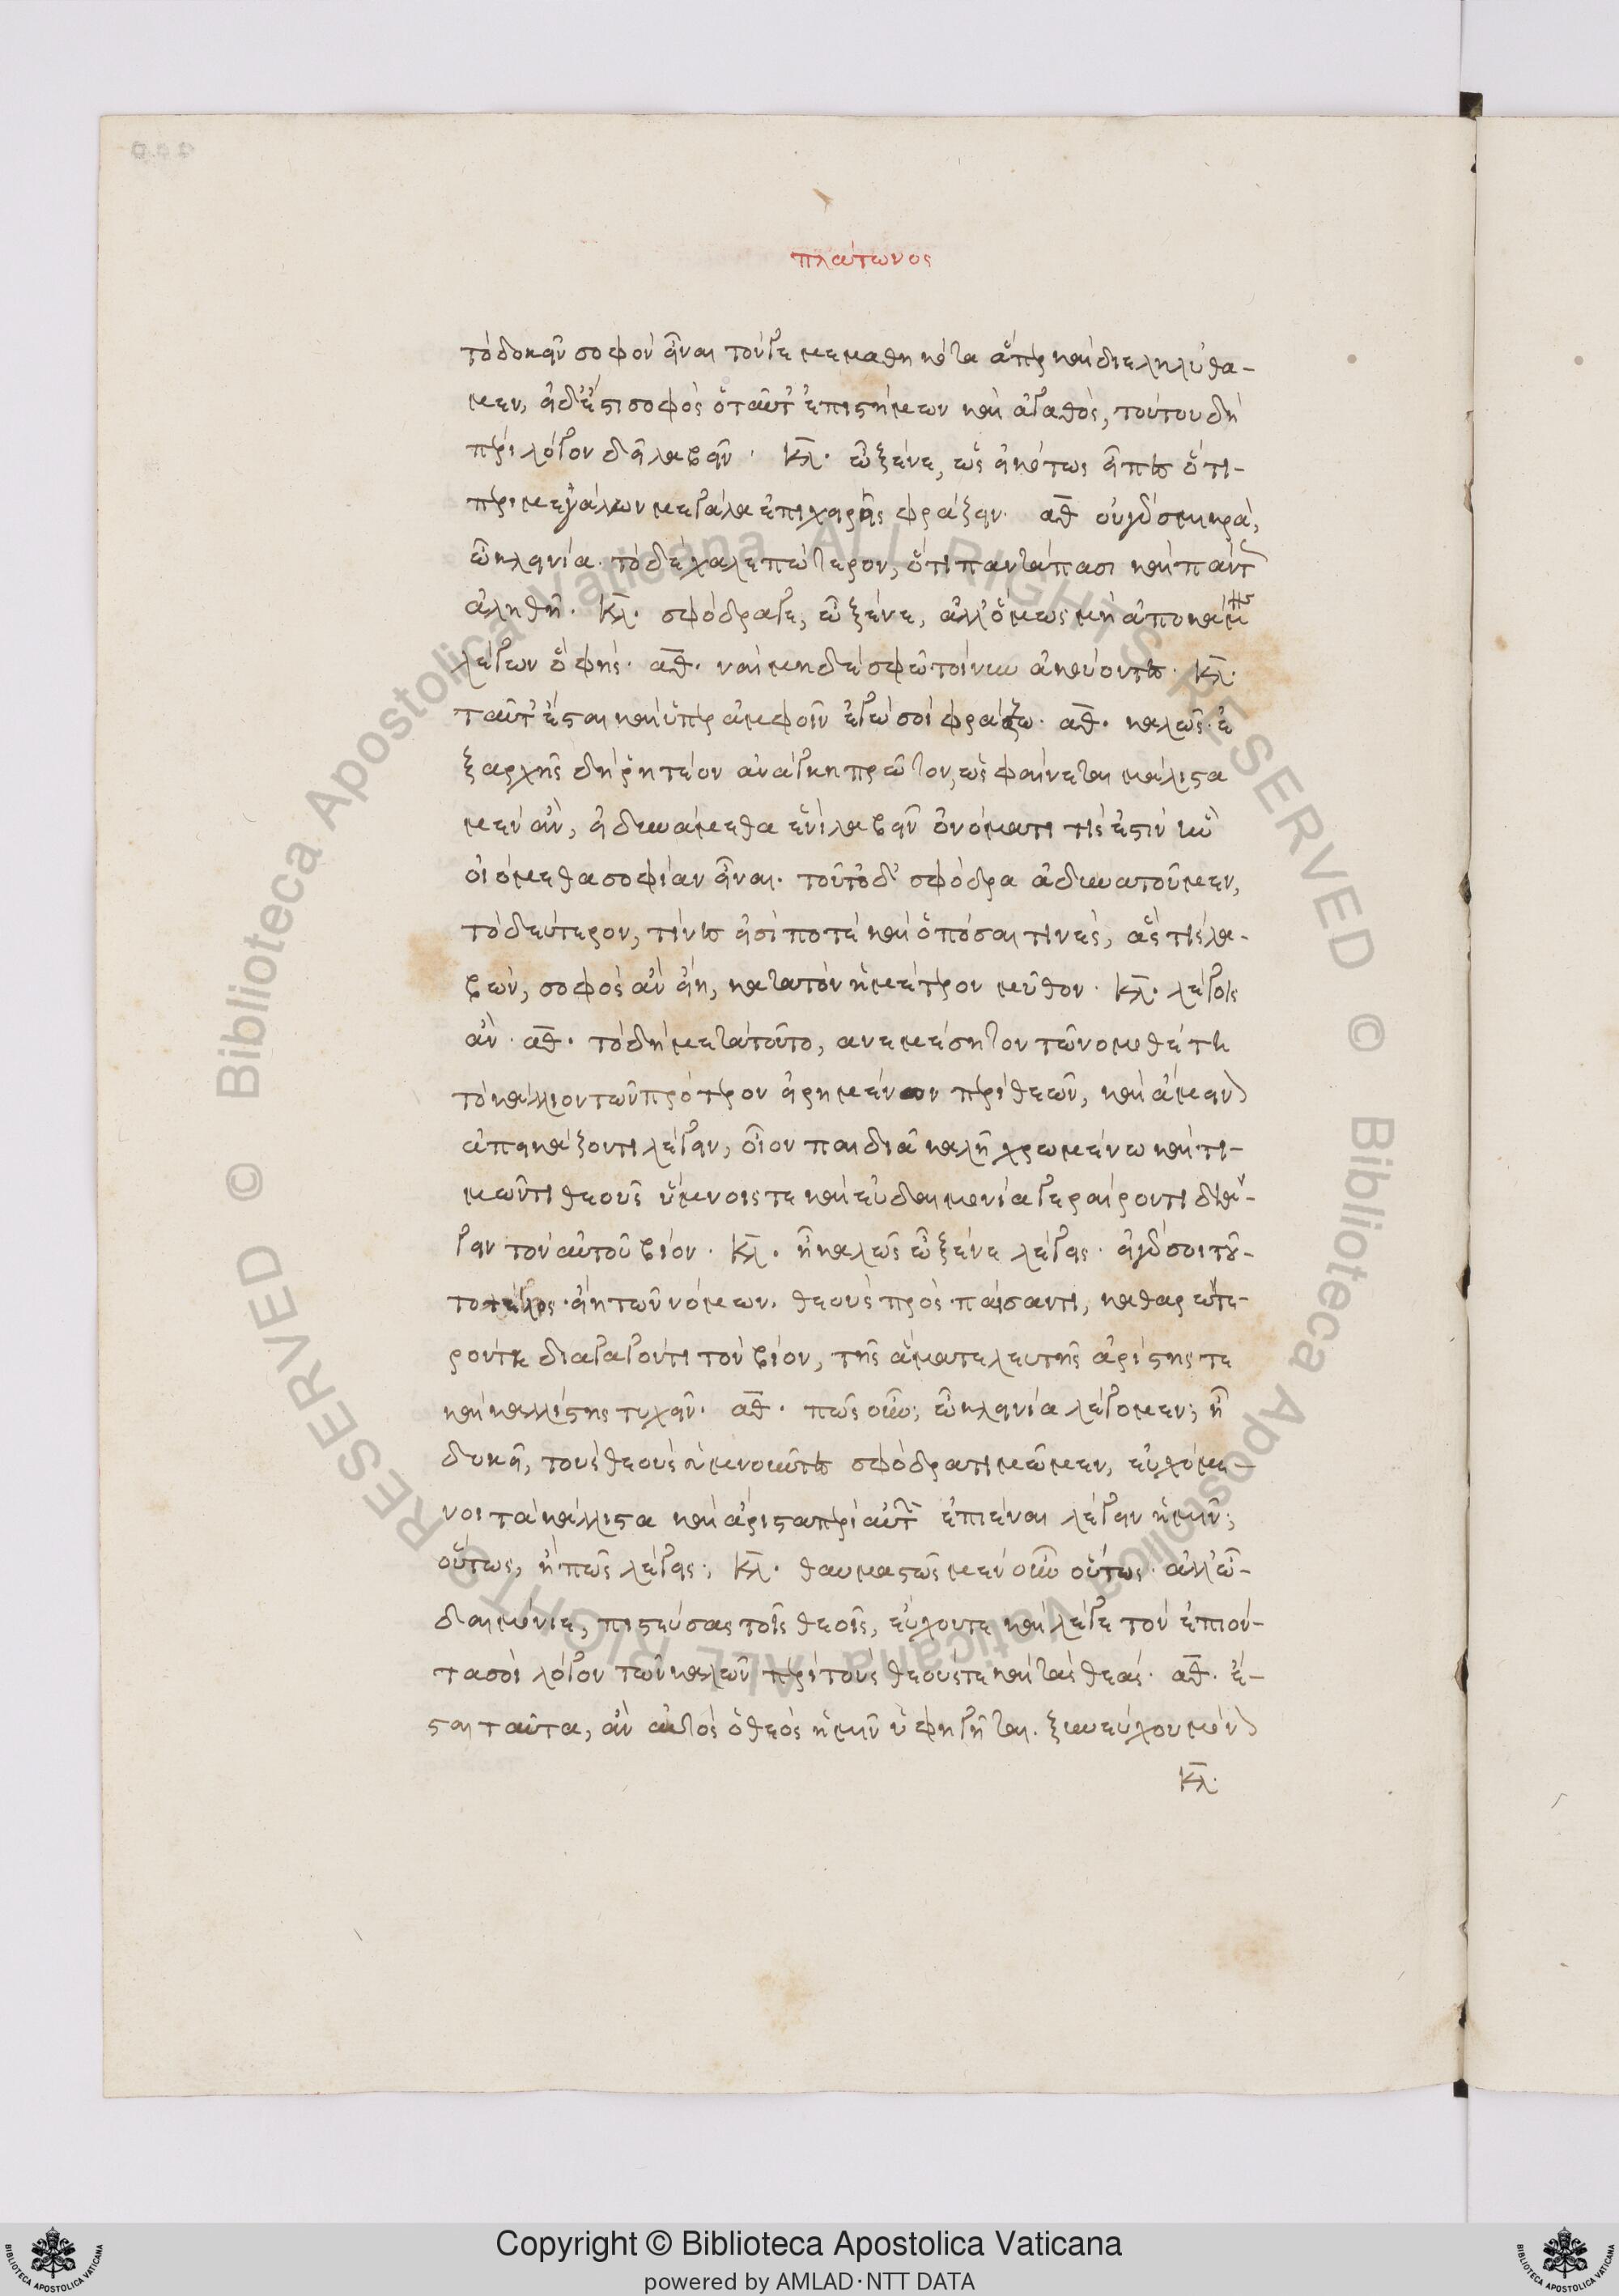 πλάτωνος
τὸ δοκεῖν σοφὸν εἶναι τόν γε μεμαθηκότα ἅπερ καὶ διεληλύθα-
μεν, εἰ δ' ἔστι σοφὸς ὁ ταῦτ' ἐπιστήμων καὶ ἀγαθὸς, τούτου δὴ
πέρι λόγον δεῖ λαβεῖν. κλ. ὦ ξένε, ὡς εἰκότως εἶπες ὅτι-
περὶ μεγάλων μεγάλα ἐπιχειρεῖς φράζειν. αθ οὐ γὰρ σμικρὰ,
ὦ κλεινία. τὸ δὲ χαλεπώτερον, ὅτι παντάπασι καὶ πάντως
ἀληθῆ. κλ. σφόδρα γε, ὦ ξένε, ἀλλ' ὅμως μὴ ἀποκάμῃς
λέγων ὃ φῄς. αθ. ναὶ μηδὲ σφὼ τοίνυν ἀκούοντες. κλ.
ταῦτ' ἔσται καὶ ὑπὲρ ἀμφοῖν ἐγώ σοι φράζω. αθ. καλῶς. ἐ
ξαρχῆς δὴ ῥητέον ἀνάγκη πρῶτον, ὡς φαίνεται μάλιστα
μὲν ἂν, εἰ δυνάμεθα ἑνὶ λαβεῖν ὀνόματι τίς ἐστὶν ἣν
οἰόμεθα σοφίαν εἶναι. τοῦτο δ' σφόδρα ἀδυνατοῦμεν,
τὸ δεύτερον, τίνες εἰσί ποτε καὶ ὁπόσαι τινὲς, ἃς τις λα-
βὼν, σοφὸς ἂν εἴη, κατὰ τὸν ἡμέτερον μῦθον. κλ. λέγοις
ἄν. αθ. τὸ δὴ μετὰ τοῦτο, ἀνεμέσητον τῶ νομοθέτῃ
τὸ κάλλιον τῶν πρότερον εἰρημένων περὶ θεῶν, καὶ ἄμεινον
ἀπεικάζοντι λέγειν, οἷον παιδιᾷ καλῇ χρωμένω καὶ τι-
μῶντι θεοὺς ὕμνοις τε καὶ εὐδαιμονίᾳ γεραίροντι διά-
γειν τὸν αὑτοῦ βίον. κλ. ἦ καλῶς ὦ ξένε λέγεις. εἰ γάρ σοι τοῦ-
το τέλος. εἴη τῶν νόμων. θεοὺς προσπαίσαντι, καθαρώτε-
ρόν τε διαγαγόντι τὸν βίον, τῆς ἅμα τελευτῆς ἀρίστης τε
καὶ καλλίστης τυχεῖν. αθ. πῶς οὖν; ὦ κλεινία λέγομεν; ἦ
δοκεῖ, τοὺς θεοὺς ὑμνοῦντες σφόδρα τιμῶμεν, εὐχόμε-
νοι τὰ κάλλιστα καὶ ἄριστα περὶ αὐτῶν ἐπιέναι λέγειν ἡμῖν;
οὕτως, ἢ πῶς λέγεις; κλ. θαυμαστῶς μὲν οὖν οὕτως. ἀλλ' ὦ-
δαιμόνιε, πιστεύσας τοῖς θεοῖς, εὔχου τε καὶ λέγε τὸν ἐπιόν-
τα σοι λόγον τῶν καλῶν περὶ τοὺς θεούς τε καὶ τὰς θεάς. αθ. ἔ-
σται ταῦτα, ἂν αὐτὸς ὁ θεὸς ἡμῖν ὑφηγῆται. ξυνεύχου μόνον
κλ.
Copyright © Biblioteca Apostolica Vaticana
powered by AMLAD·NTT DATA